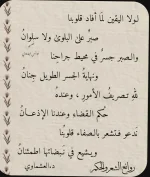 لولا اليقين لما أفاد قلوبنا
صبرٌ على البلوى ولا سلوانُ
والصبر جسرٌ في محيط جراحنا
ونهاية الجسر الطويل جنانُ
لله تصريف الأمور ، وعنده
حكم القضاء وعندنا الإذعانُ
ندعو فتشعر بالصفاء قلوبنا
ويشيع في نبضاتها اطمئنانُ
د. العشماوي
روائع الشعر والحكم